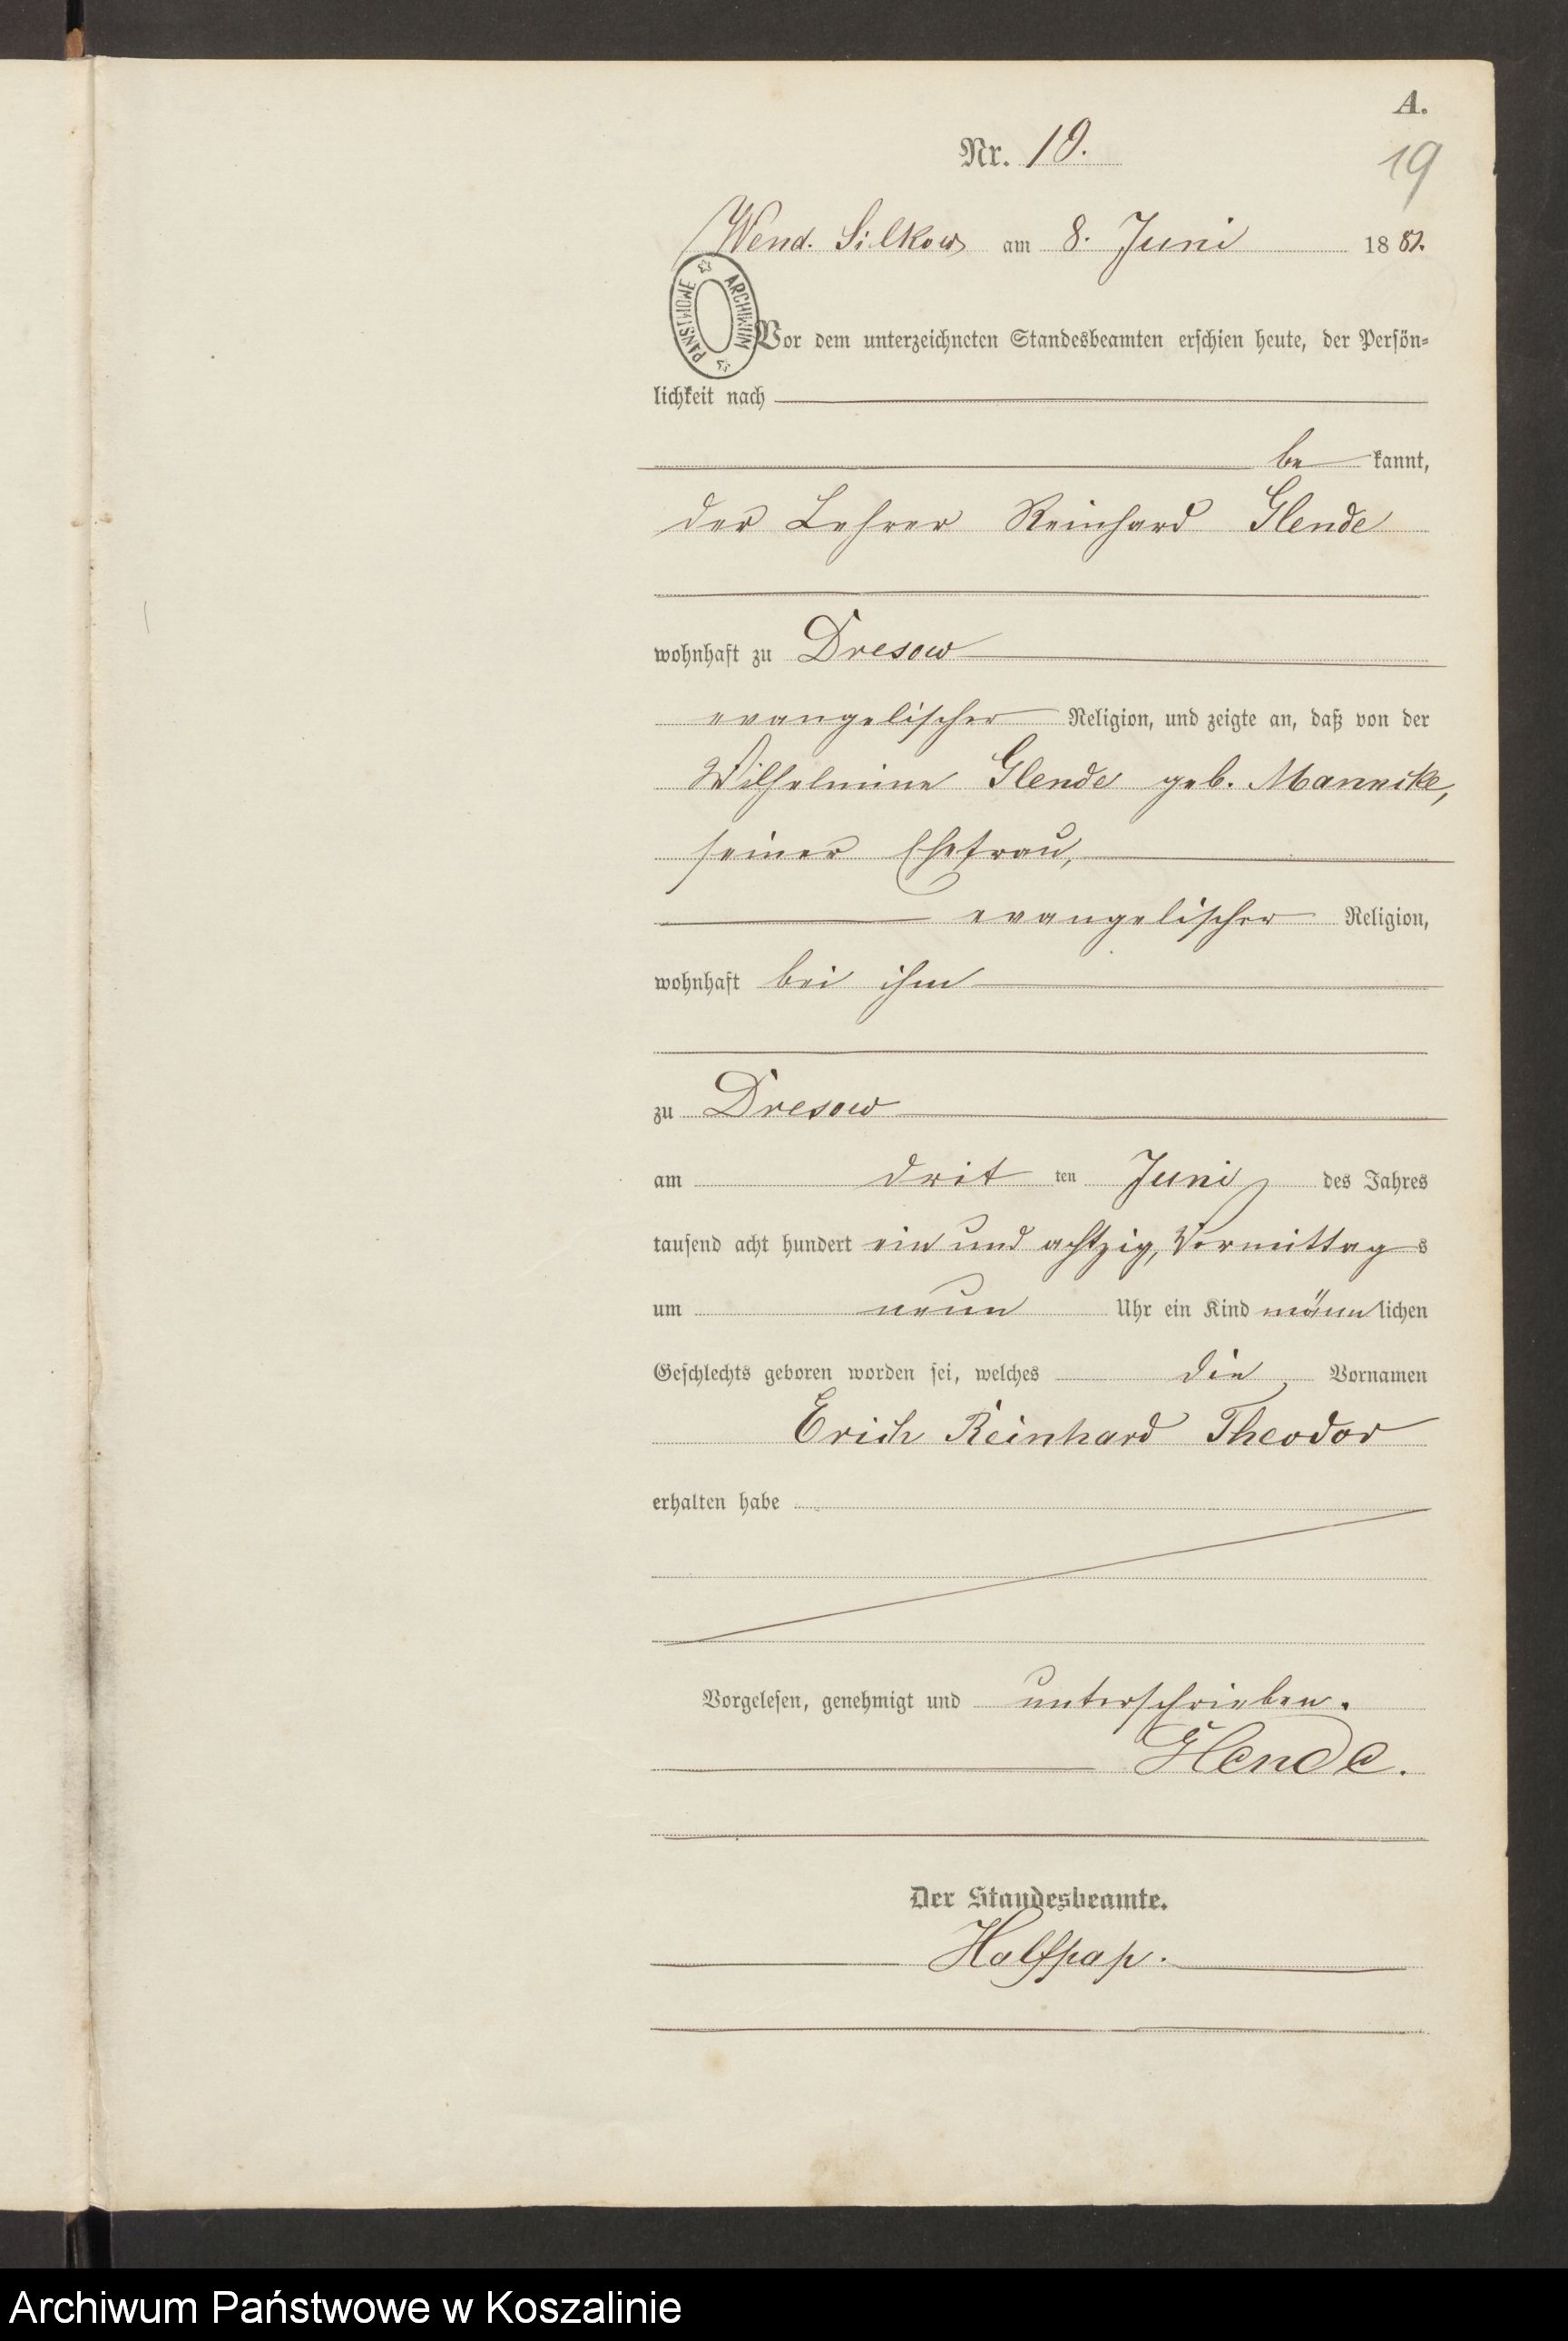 A.
Nr. 19.
19
Wend. Silkow am 8. Juni 1881.
ARCHIWUM PAŃSTWOWE
Vor dem unterzeichneten Standesbeamten erschien heute, der Persön-
lichkeit nach
be kannt,
der Lehrer Reinhard Glende
wohnhaft zu Dresow
evangelischer Religion, und zeigte an, daß von der
Wilhelmine Glende geb. Mannike,
seiner Ehefrau,
evangelischer Religion,
wohnhaft bei ihm
zu Dresow
am drit ten Juni des Jahres
tausend acht hundert ein und achtzig, Vormittag s
um neun Uhr ein Kind männ lichen
Geschlechts geboren worden sei, welches die Vornamen
Erich Reinhard Theodor
erhalten habe
Vorgelesen, genehmigt und unterschrieben.
Glende.
Der Standesbeamte.
Halfpap.
Archiwum Państwowe w Koszalinie